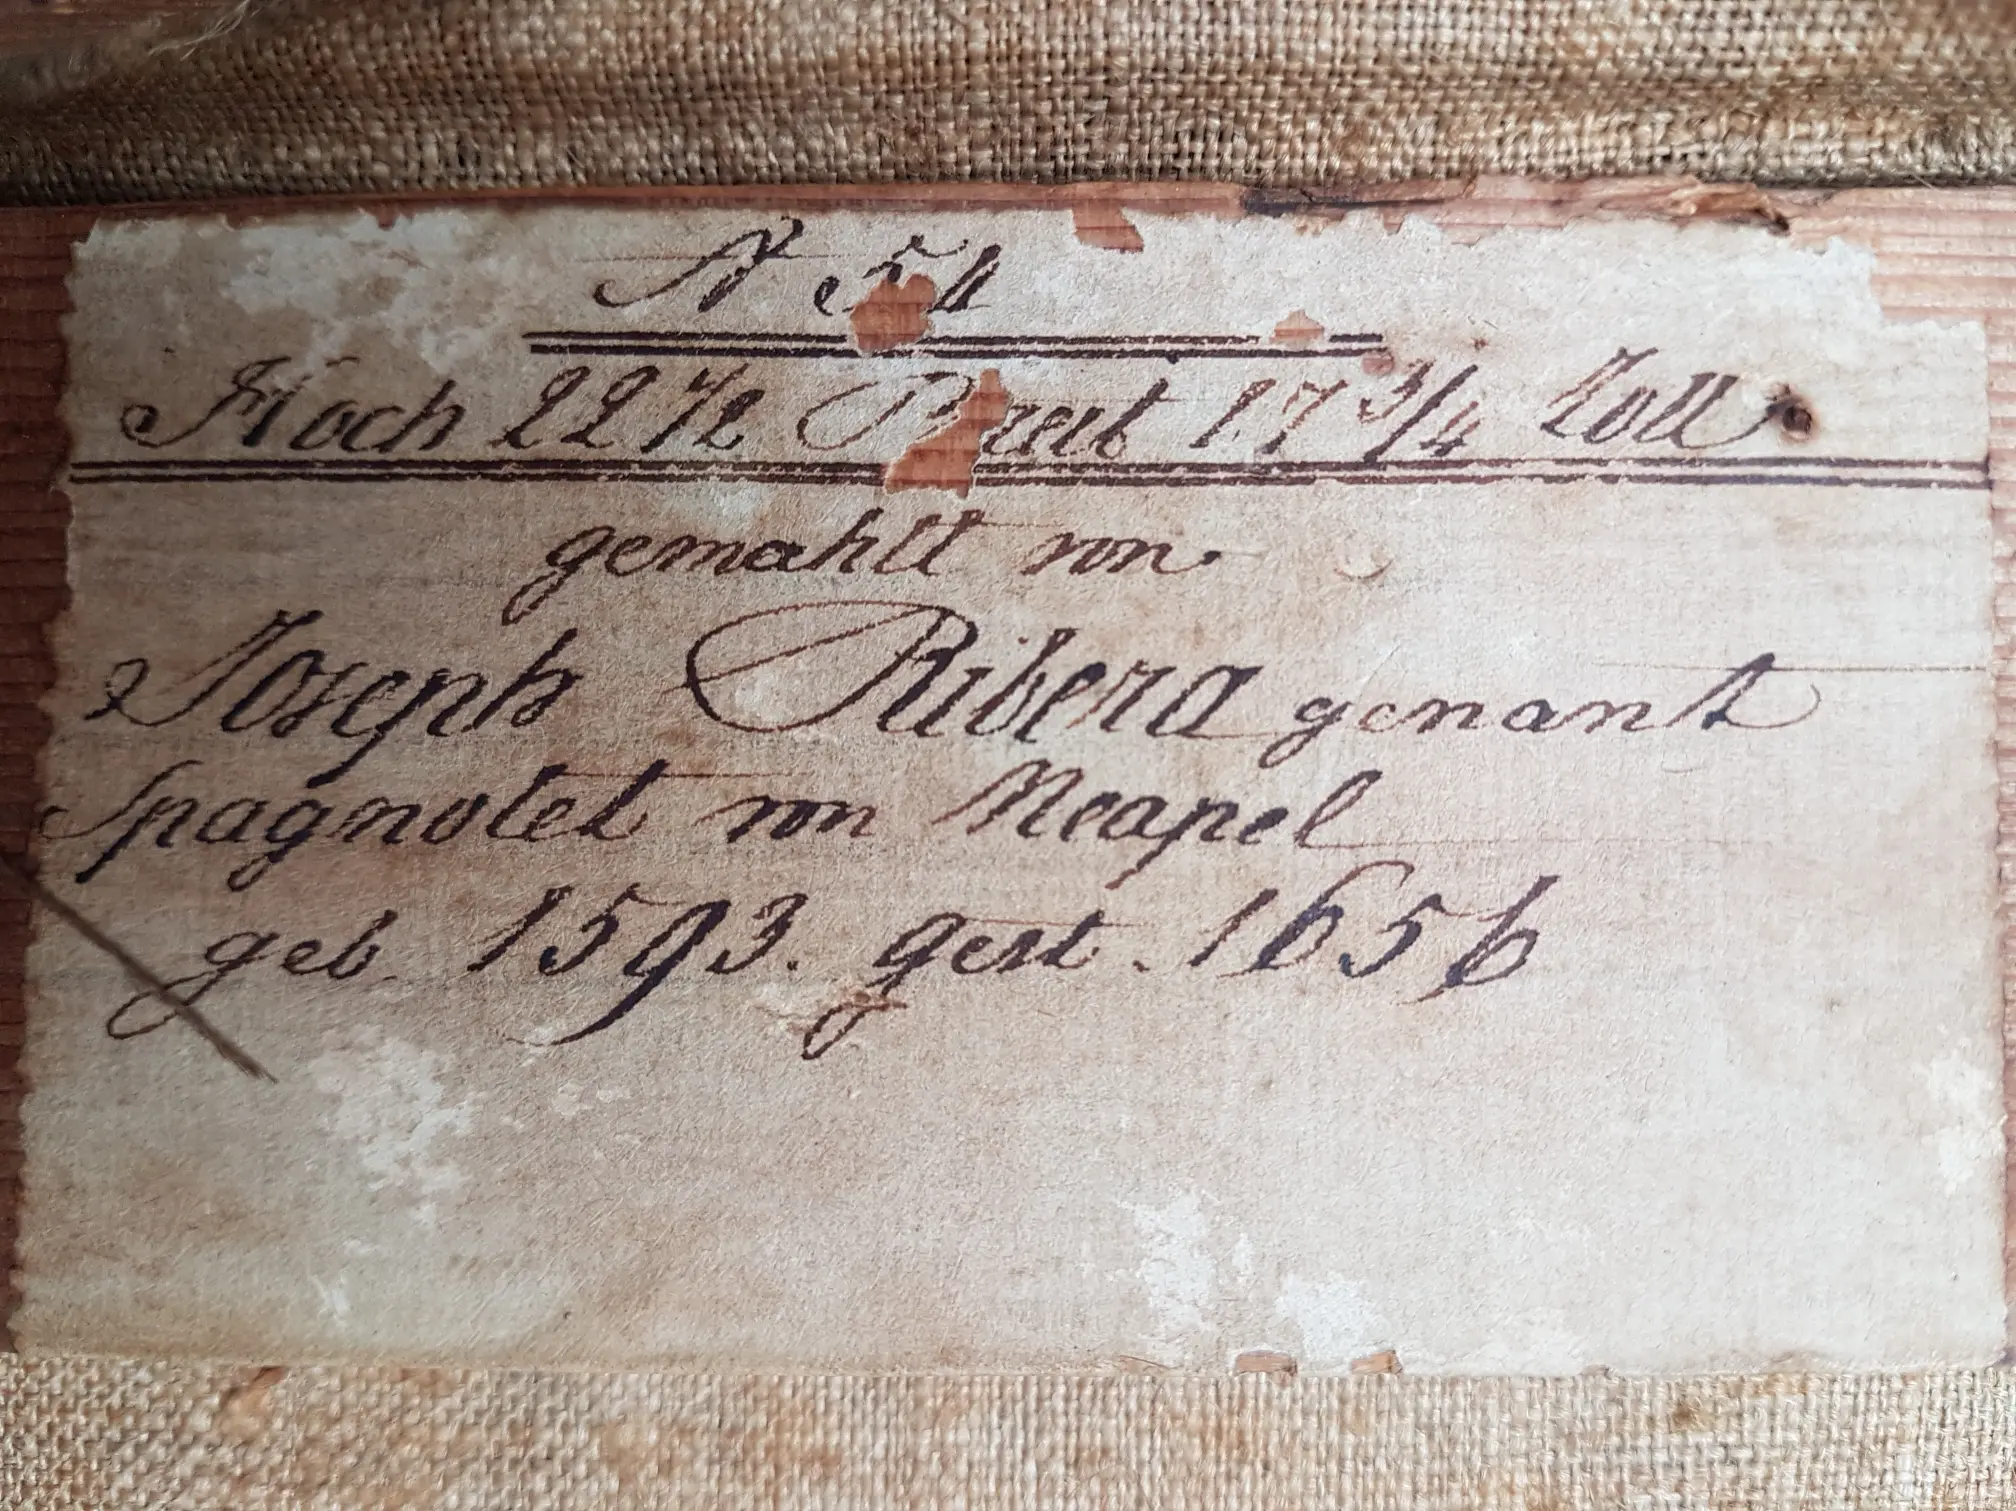 N 54
Hoch 22 1/2 Breit 17 3/4 Zoll
gemahlt von
Joseph Ribera genant
Spagnolet von Neapel
geb. 1593. gest. 1656